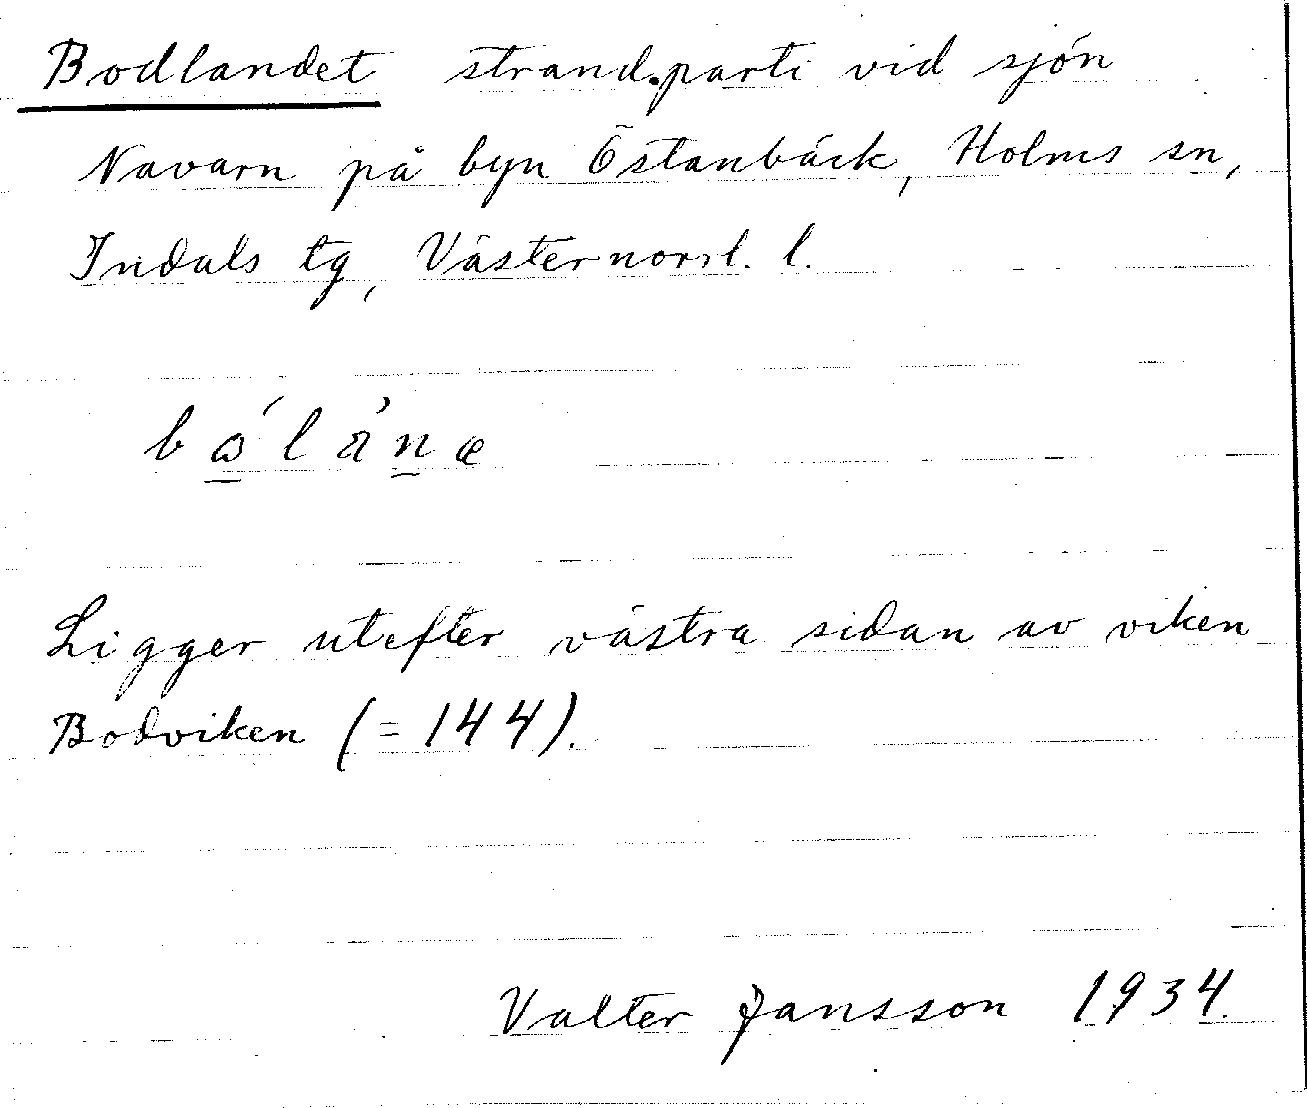 Bodlandet strandparti vid sjön
Navarn på byn Östanbäck, Holms sn,
Indals tg, Västernorrl. l.
Ligger utefter västra sidan av viken
Bodviken (= 144).
Valter Jansson 1934.